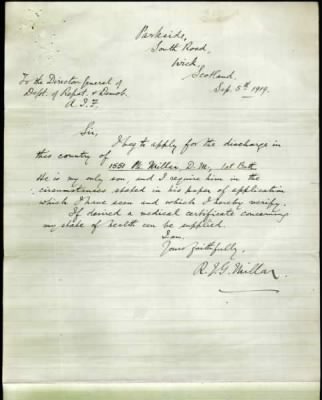 Parkside,
South Road,
Wick,
Scotland.
Sep. 5th, 1919.
To the Director General of
Dept. of Repat. & Demob.
A.I.F.
Sir,
I beg to apply for the discharge in
this country of 1551 Pte Millar D.M., 1st Battn.
He is my only son, and I require him in the
circumstances stated in his paper of application
which I have seen and which I hereby verify.
If desired a medical certificate concerning
my state of health can be supplied.
I am,
Yours faithfully,
R.J.G. Millar.